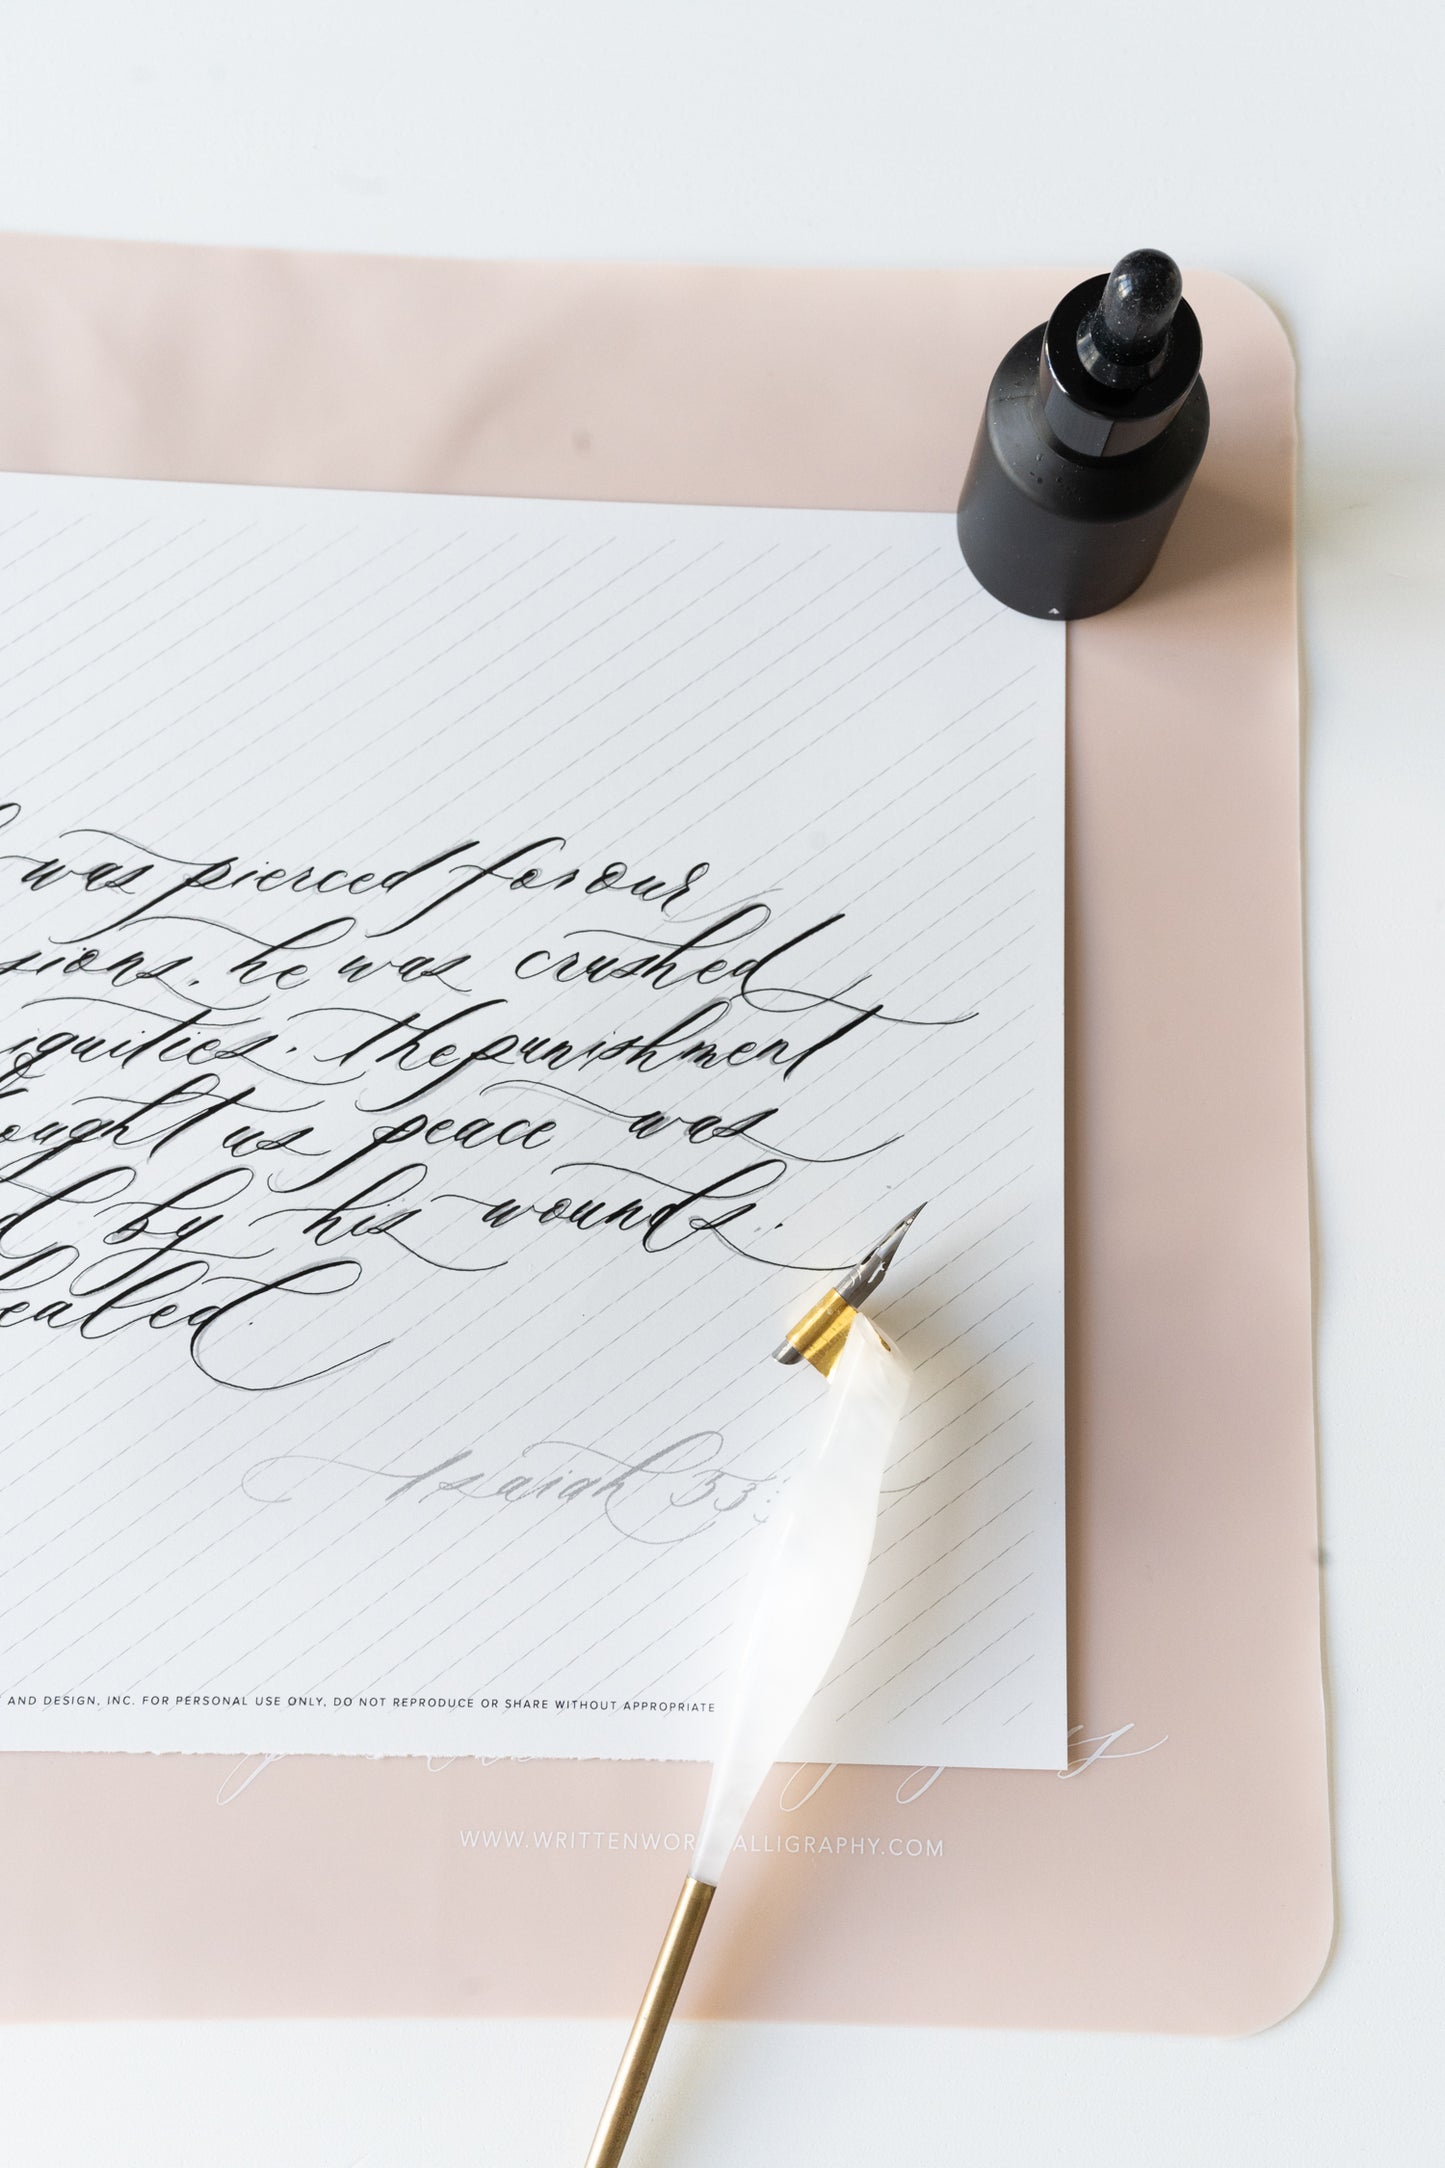 was pierced for our
sions, he was crushed
iquities. The punishment
ought us peace was
d by his wounds.
healed.
Isaiah 53:
AND DESIGN, INC. FOR PERSONAL USE ONLY, DO NOT REPRODUCE OR SHARE WITHOUT APPROPRIATE
WWW.WRITTENWOR ALLIGRAPHY.COM